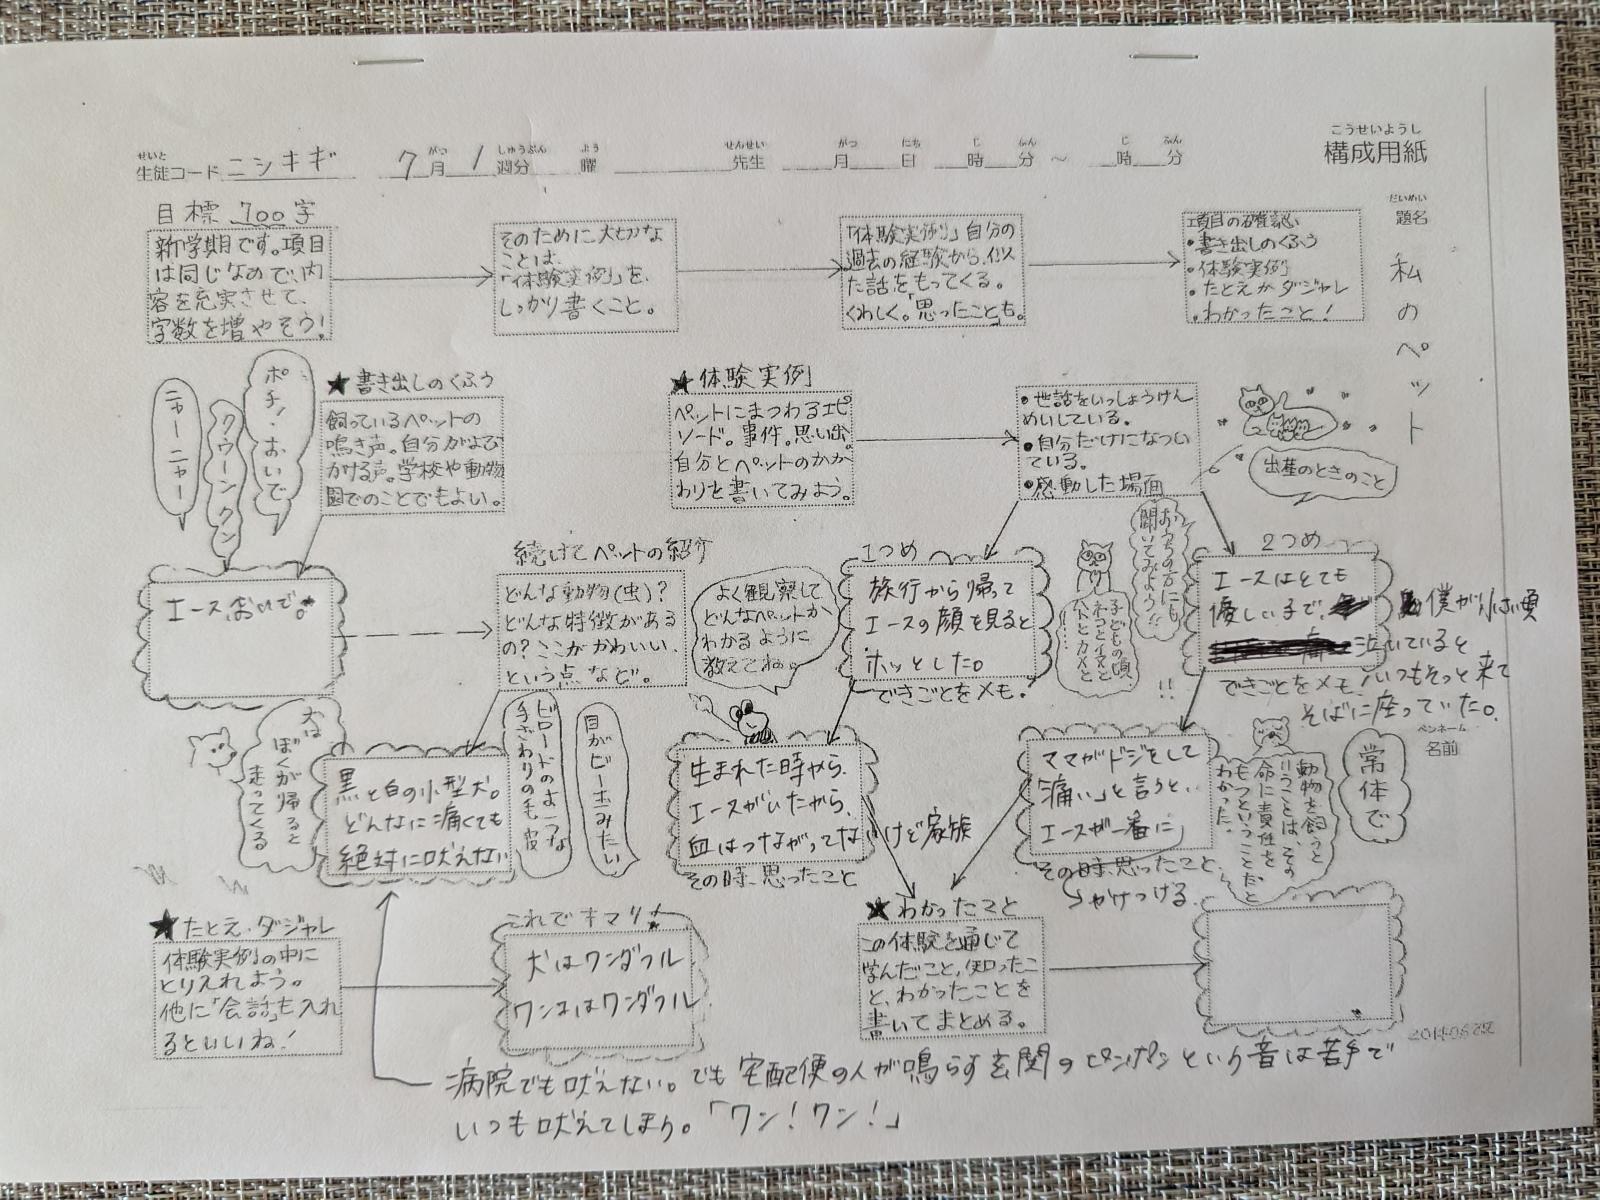 こうせいようし
構成用紙
せいと がつ しゅうぶん よう せんせい がつ にち じ ふん じ ふん
生徒コード ニシキギ 7月 1週分 曜 先生 月 日 時 分 ～ 時 分
だいめい
題名
私のペット
目標 700字
新学期です。項目
は同じなので、内
容を充実させて、
字数を増やそう!
そのために大切な
ことは、
「体験実例」を、
しっかり書くこと。
「体験実例」自分の
過去の経験から、似
た話をもってくる。
くわしく。「思ったこと」も。
項目の確認
・書き出しのくふう
・体験実例
・たとえかダジャレ
・わかったこと!
ポチ!おいで
クウーンクン
ニャーニャー
★書き出しのくふう
飼っているペットの
鳴き声。自分がよび
かける声。学校や動物
園でのことでもよい。
★体験実例
ペットにまつわるエピ
ソード。事件。思い出。
自分とペットのかか
わりを書いてみよう。
・世話をいっしょうけん
めいしている。
・自分だけになつい
ている。
・感動した場面
出産のときのこと
エースおいで。
続けてペットの紹介
どんな動物(虫)?
どんな特徴がある
の?ここがかわいい、
という点など。
よく観察して
どんなペットか
わかるように
教えてね。
1つめ
旅行から帰って
エースの顔を見ると
ホッとした。
できごとをメモ。
おうちの方にも
聞いてみよう!!
子どもの頃
ネコとイヌと
ハトとカメと
!!
2つめ
エースはとても
優しい子で、僕が小さい頃
泣いていると
いつもそっと来て
そばに座っていた。
できごとをメモ。
ペンネーム
名前
犬は
ぼくが帰ると
走ってくる
黒と白の小型犬。
どんなに痛くても
絶対に吠えない
ビロードのような
手ざわりの毛皮
目がビー玉みたい
生まれた時から、
エースがいたから、
血はつながってないけど家族
その時、思ったこと
ママがドジをして
「痛い」と言うと、
エースが一番に
かけつける。
その時、思ったこと
動物を飼うと
いうことは、その
命に責任を
もつということだと
わかった。
常体で
★たとえ・ダジャレ
体験実例の中に
とりいれよう。
他に「会話」も入れ
るといいね!
これでキマリ!
犬はワンダフル
ワンコはワンダフル
★わかったこと
この体験を通じて
学んだこと、知ったこ
と、わかったことを
書いてまとめる。
病院でも吠えない。でも宅配便の人が鳴らす玄関のピンポンという音は苦手で
いつも吠えてしまう。「ワン!ワン!」